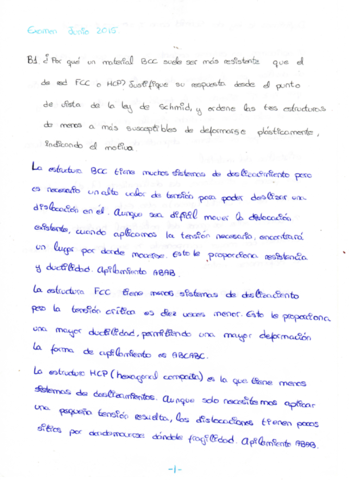 Examen Junio 2015
B1 ¿Por qué un material BCC suele ser más resistente que el
de red FCC o HCP? Justifique su respuesta desde el punto
de vista de la ley de Schmid, y ordene las tres estructuras
de menos a más susceptibles de deformarse plásticamente,
indicando el motivo.
La estructura BCC tiene muchos sistemas de deslizamiento pero
es necesario un alto valor de tensión para poder deslizar una
dislocación en él. Aunque sea difícil mover la dislocación
existente, cuando aplicamos la tensión necesaria, encontrará
un lugar por donde moverse. Esto le proporciona resistencia
y ductilidad. Apilamiento ABAB.
La estructura FCC tiene menos sistemas de deslizamiento
pero la tensión crítica es diez veces menor. Esto le proporciona
una mayor ductilidad, permitiendo una mayor deformación
La forma de apilamiento es ABCABC.
La estructura HCP (hexagonal compacta) es la que tiene menos
sistemas de deslizamientos. Aunque solo necesitemos aplicar
una pequeña tensión resuelta, las dislocaciones tienen pocos
sitios por donde moverse dándole fragilidad. Apilamiento ABAB.
-1-